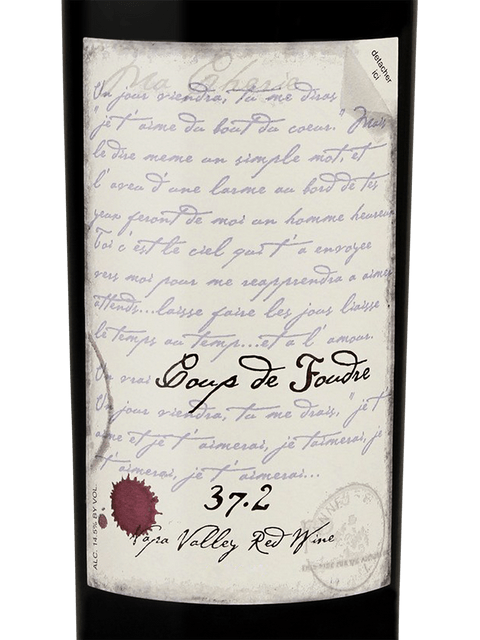 Ma Cherie
detacher
ici
Un jour viendra, tu me diras
"je t'aime du bout du coeur." Mais
le dire meme un simple mot, et
l'aveu d'une larme au bord de tes
yeux feront de moi un homme heureux
Toi c'est le ciel qui t'a envoyee
vers moi pour me reapprendra a aimer
attends...laisse faire les jours liaisse
le temps au temps...et a l'amour.
Un vrai Coup de Foudre
Un jour viendra, tu me drais, "je t'
aime et je t'aimerai, je taimerai, je
t'aimerai, je t'aimerai...
37.2
Napa Valley Red Wine
ALC. 14.5% BY VOL